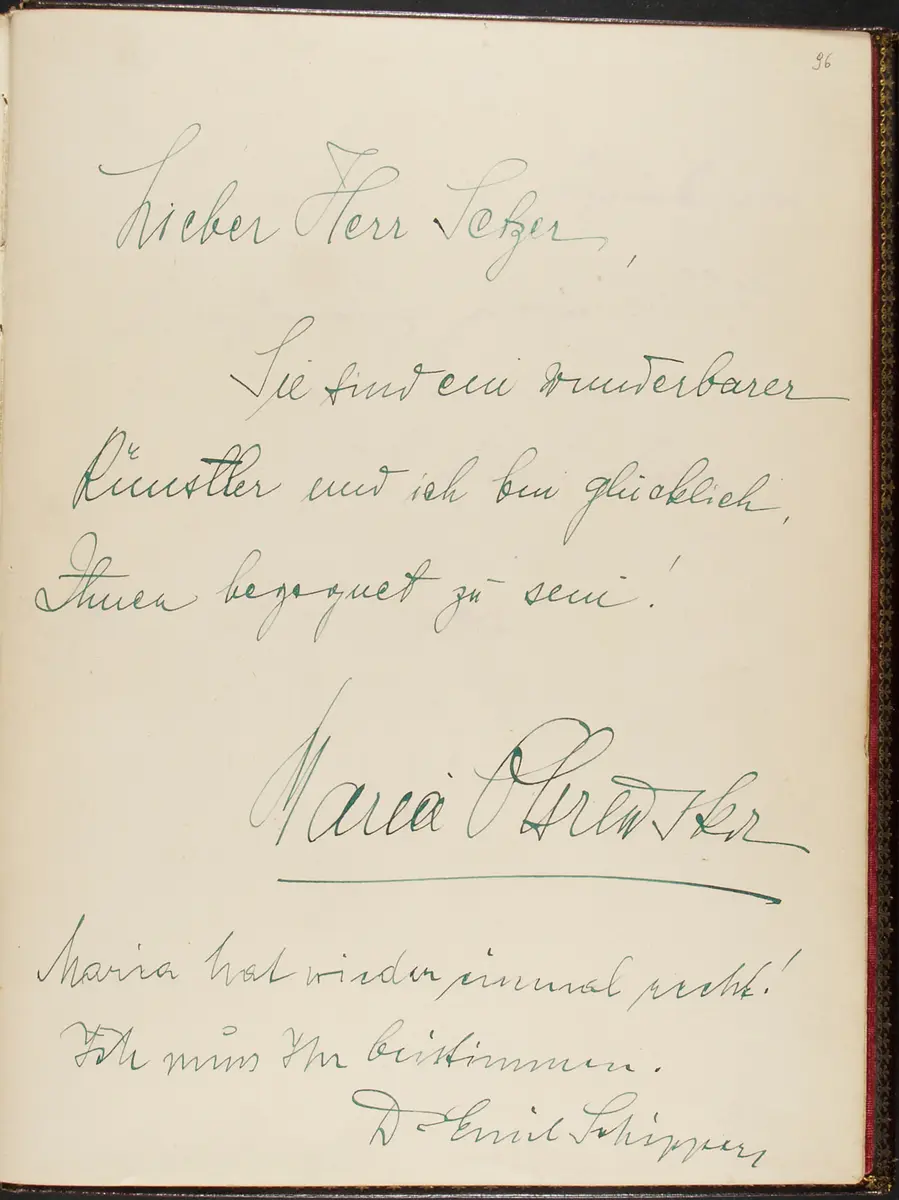 96
Lieber Herr Setzer,
Sie sind ein wunderbarer
Künstler und ich bin glücklich,
Ihnen begegnet zu sein!
Maria Olszewska
Maria hat wieder einmal recht!
Ich muss Ihr beistimmen.
Dr Emil Schipper